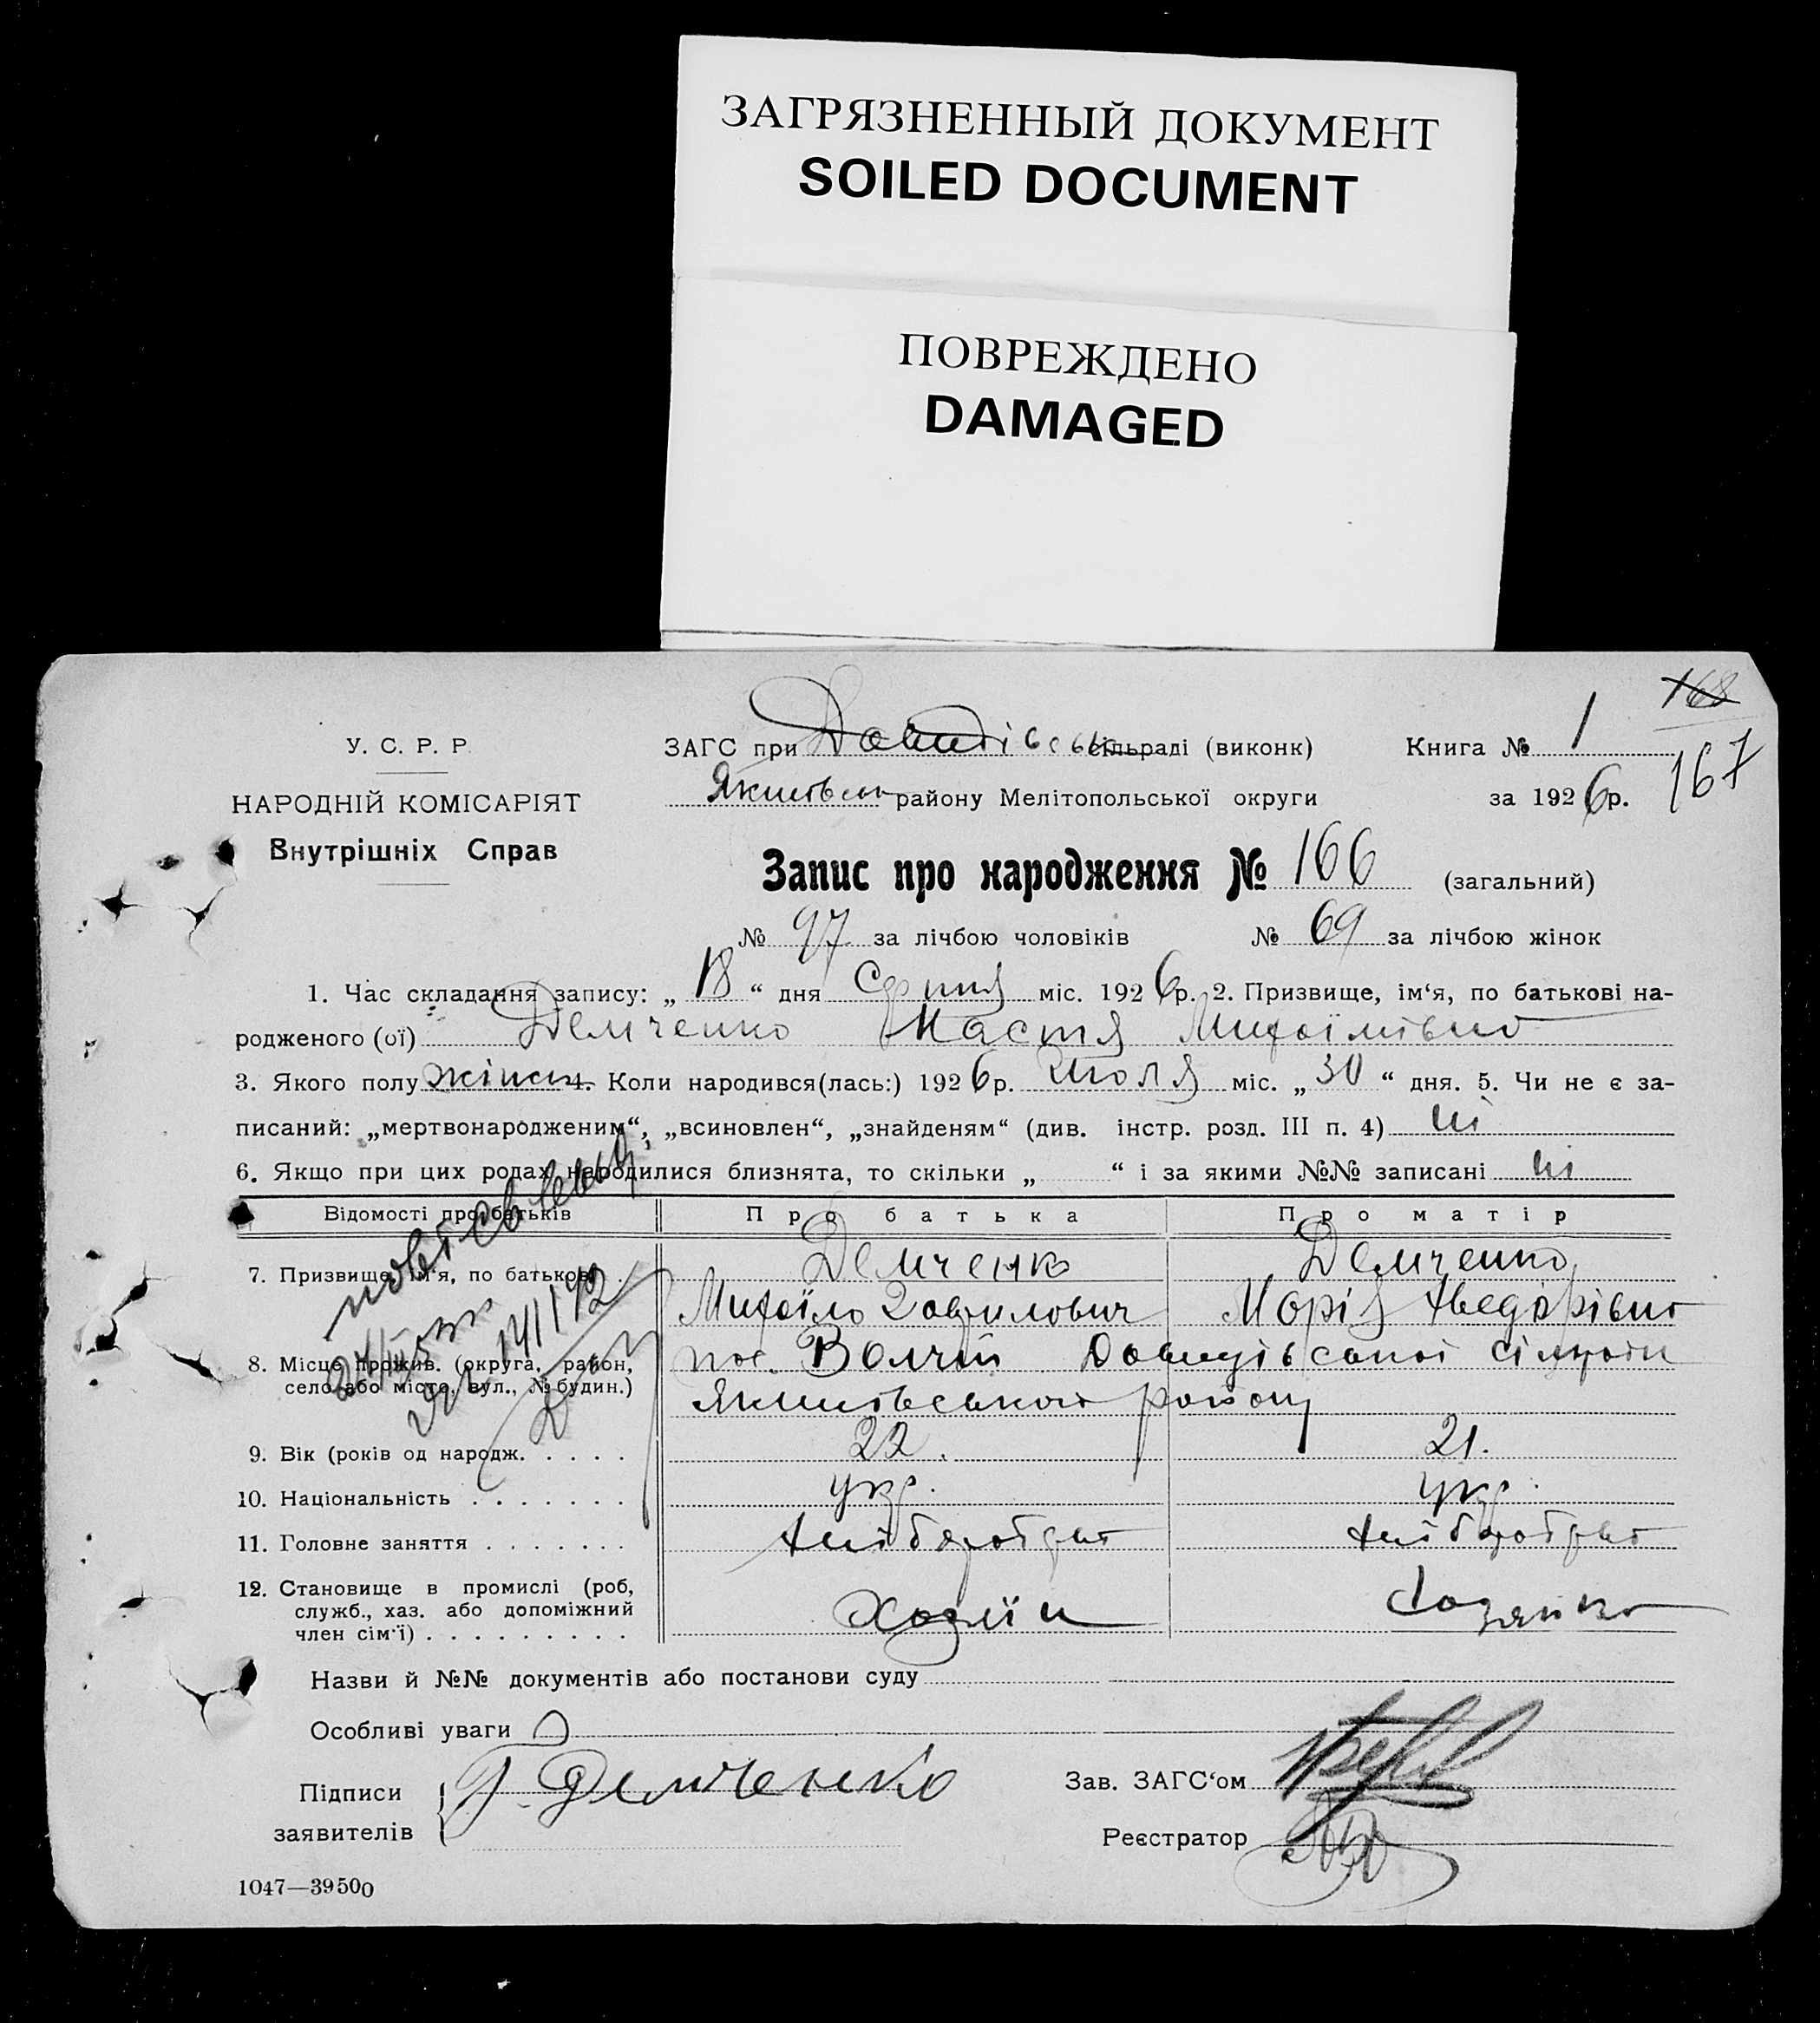 ЗАГРЯЗНЕННЫЙ ДОКУМЕНТ
SOILED DOCUMENT
ПОВРЕЖДЕНО
DAMAGED
168
У. С. Р. Р.
ЗАГС при сільраді (виконк)
Книга № 1
167
НАРОДНІЙ КОМІСАРІЯТ
району Мелітопольської округи
за 1926р.
Внутрішніх Справ
Запис про народження № 166 (загальний)
№ 97 за лічбою чоловіків № 69 за лічбою жінок
1. Час складання запису: „ 18 “ дня Серпня міс. 1926р. 2. Призвище, ім‘я, по батькові на-
родженого (ої) Демченко Настя Михаїлівна
3. Якого полу жіноч. 4. Коли народився(лась:) 1926р. Июля міс. „ 30 “ дня. 5. Чи не є за-
писаний: „мертвонародженим“, „всиновлен“, „знайденям“ (див. інстр. розд. III п. 4) ні
6. Якщо при цих родах народилися близнята, то скільки „ “ і за якими №№ записані ні
Відомості про батьків
Про батька
Про матір
7. Призвище, ім‘я, по батькові
Демченко
Демченко
Михаїло Гаврилович
Марія
8. Місце прожив. (округа, район,
село або місто, вул., № будин.)
пос. Волчий Давидівської сільради
Якимівського району
14/I 42
9. Вік (років од народж. . . . .
22.
21.
10. Національність . . . . . . .
укр.
укр.
11. Головне заняття . . . . . . .
хліборобство
хліборобство
12. Становище в промислі (роб,
служб., хаз. або допоміжний
член сім‘ї) . . . . . . . . .
Хозяїн
хозяйка
Назви й №№ документів або постанови суду
Особливі уваги
Підписи
заявителів
Г. Демченко
Зав. ЗАГС‘ом
Реєстратор
1047—39500